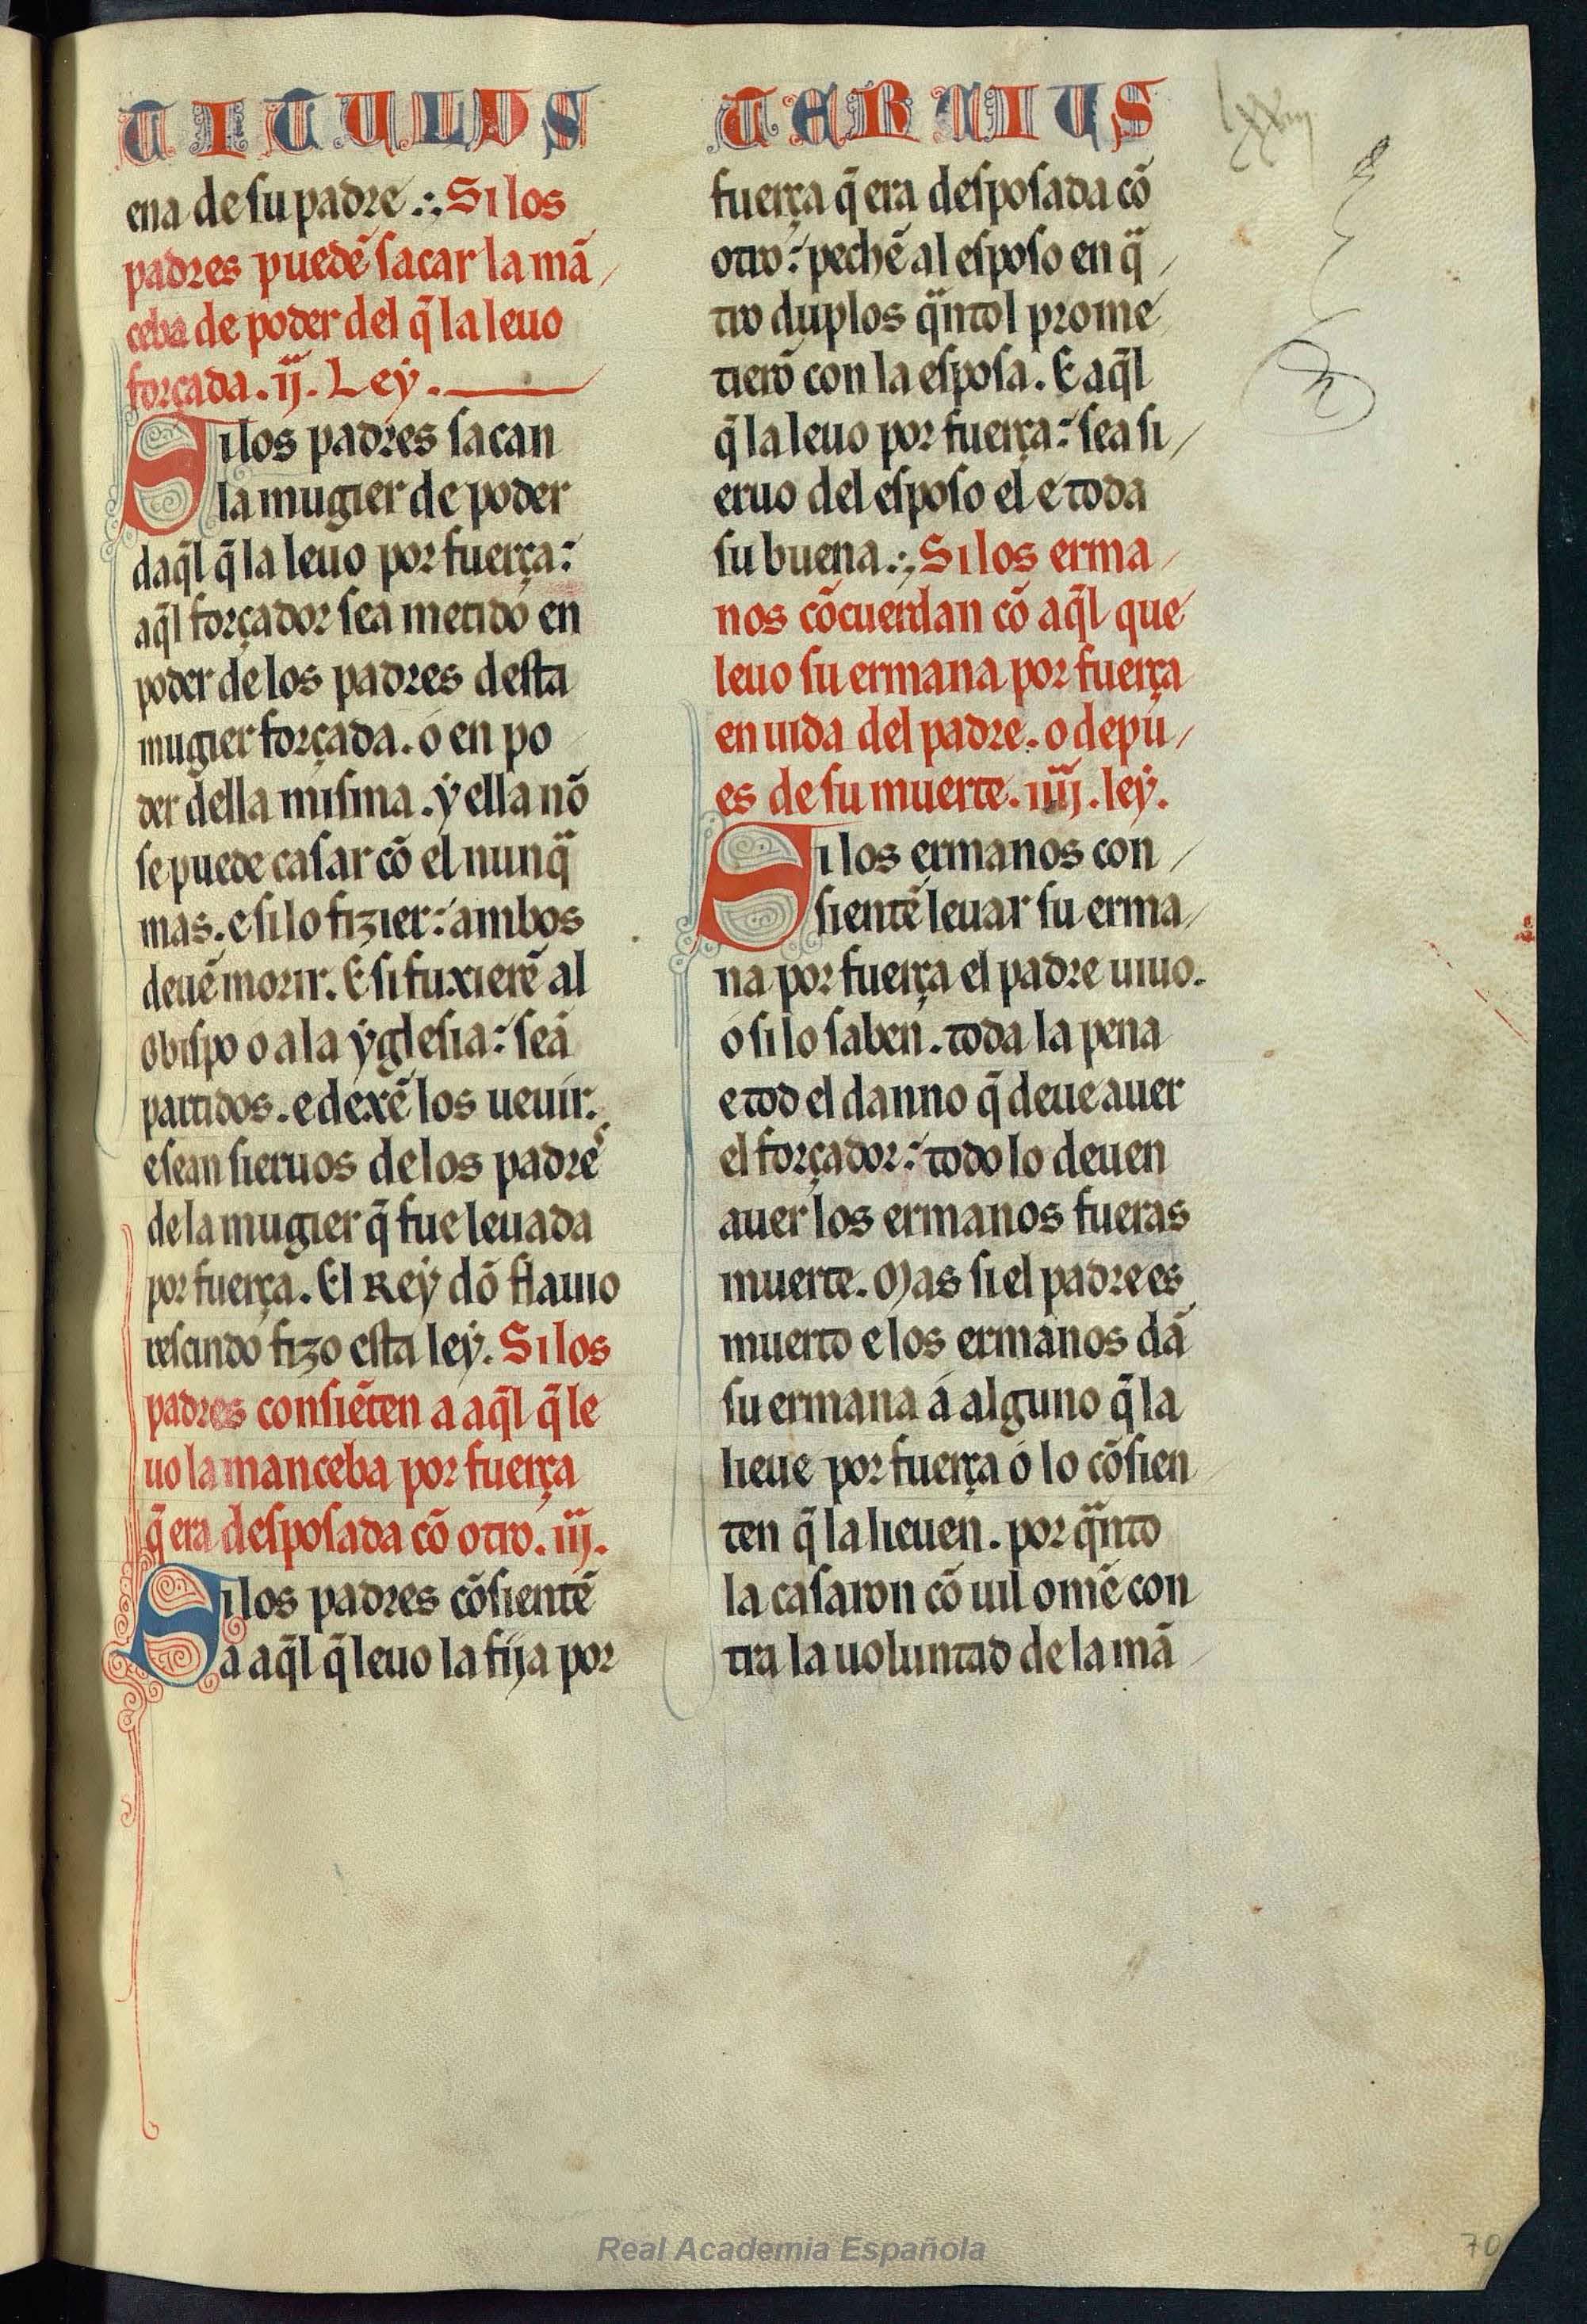 TITULUS TERCIUS
ena de su padre ·:· Si los
padres puedē sacar la mā
ceba de poder del q̄ la leuo
forçada. ij. Ley.
Si los padres sacan
la mugier de poder
daq̄l q̄ la leuo por fuerça:
aq̄l forçador sea metido en
poder de los padres desta
mugier forçada. o en po
der della misma. ẏ ella nō
se puede casar cō el nunq̄
mas. e si lo fizier: ambos
deuē morir. E si fuxierē al
obispo o a la ẏglesia: seā
partidos. e dexē los ueuir.
e sean sieruos de los padres
de la mugier q̄ fue leuada
por fuerça. El Reẏ dō flauio
rescindo fizo esta leẏ. Si los
padres consiēten a aq̄l q̄ le
uo la manceba por fuerça
q̄ era desposada cō otro. iij.
Si los padres cōsientē
a aq̄l q̄ leuo la fija por
fuerça q̄ era desposada cō
otro: pechē al esposo en q̄
tro duplos q̄ntol prome
tierō con la esposa. E aq̄l
q̄ la leuo por fuerça: sea si
eruo del esposo el e toda
su buena ·:· Si los erma
nos cōcuerdan cō aq̄l que
leuo su ermana por fuerça
en uida del padre. o depu
es de su muerte. iiij. leẏ.
Si los ermanos con
sientē leuar su erma
na por fuerça el padre uiuo.
o si lo saben. toda la pena
e tod el danno q̄ deue auer
el forçador: todo lo deuen
auer los ermanos fueras
muerte. Mas si el padre es
muerto e los ermanos dā
su ermana a alguno q̄ la
lieue por fuerça o lo cōsien
ten q̄ la lieuen. por q̄nto
la casaron cō uil omē con
tra la uoluntad de la mā
Real Academia Española
70